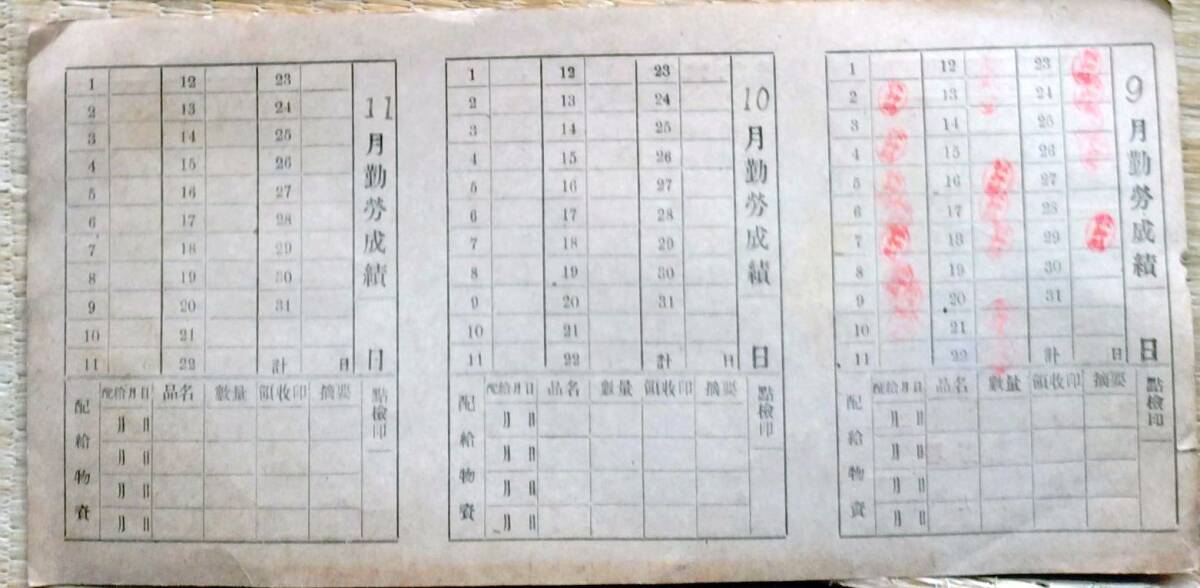 9月勤勞成績 日
1 12 23
2 13 24
3 14 25
4 15 26
5 16 27
6 17 28
7 18 29
8 19 30
9 20 31
10 21
11 22 計 日
配給物資
配給月日 品名 數量 領收印 摘要
月 日
月 日
月 日
月 日
點檢印
10月勤勞成績 日
1 12 23
2 13 24
3 14 25
4 15 26
5 16 27
6 17 28
7 18 29
8 19 30
9 20 31
10 21
11 22 計 日
配給物資
配給月日 品名 數量 領收印 摘要
月 日
月 日
月 日
月 日
點檢印
11月勤勞成績 日
1 12 23
2 13 24
3 14 25
4 15 26
5 16 27
6 17 28
7 18 29
8 19 30
9 20 31
10 21
11 22 計 日
配給物資
配給月日 品名 數量 領收印 摘要
月 日
月 日
月 日
月 日
點檢印